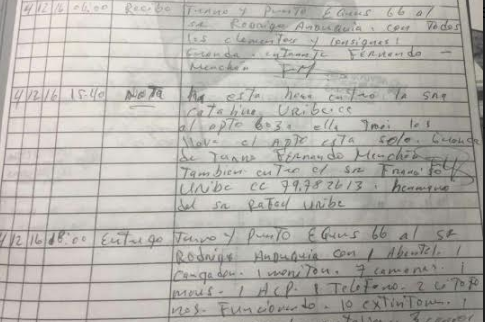 4 12 16 06:00 Recibo Turno y Punto Equus 66 al
sr Rodrigo Anduquia. con Todos
los elementos y consignas!
Guarda. saliente Fernando -
Menchén
4 12 16 15:40 Nota A esta hora entro la sra
Catalina Uribe cc
al apto 603. ella los
llava el apto esta solo. Guarda
de Turno Fernando Menchén
Tambien entro el sr Francisco
Uribe cc 79.782613. hermano
del sr Rafael Uribe
4 12 16 18:00 Entrego Turno y Punto Equus 66 al sr
Rodrigo Anduquia con 1 Abantel. 1
Cargador. 1 monitor. 7 camaras. 1
mous. 1 ACP. 1 Telefono. 2 citofo
nos. Funcionando. 10 extintores. 1